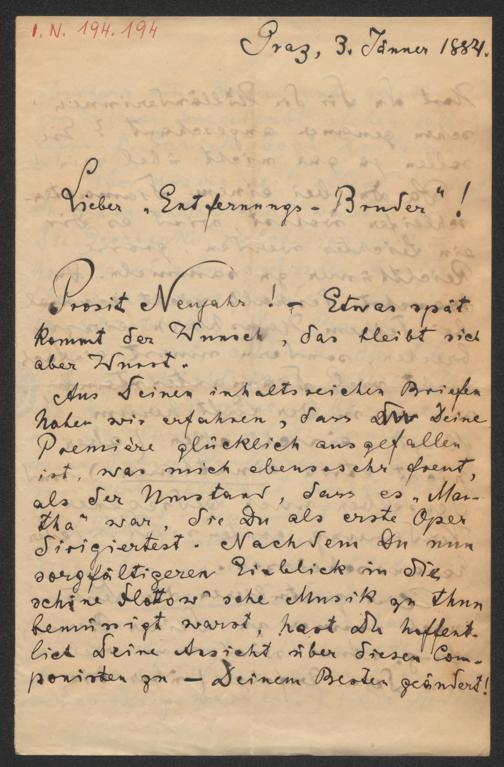 I. N. 194.194
Graz, 3. Jänner 1884.
Lieber „Entfernungs-Bruder“!
Prosit Neujahr! – Etwas spät
kommt der Wunsch, das bleibt sich
aber Wurst.
Aus Deinen inhaltsreichen Briefen
haben wir erfahren, dass Deine
Première glücklich ausgefallen
ist, was mich ebensosehr freut,
als der Umstand, dass es „Mar-
tha“ war, die Du als erste Oper
dirigiertest. Nachdem Du nun
sorgfältigeren Einblick in die
schöne Flotow'sche Musik zu thun
bemüssigt warst, hast Du hoffent-
lich Deine Ansicht über diesen Com-
ponisten zu – Deinem Besten geändert!